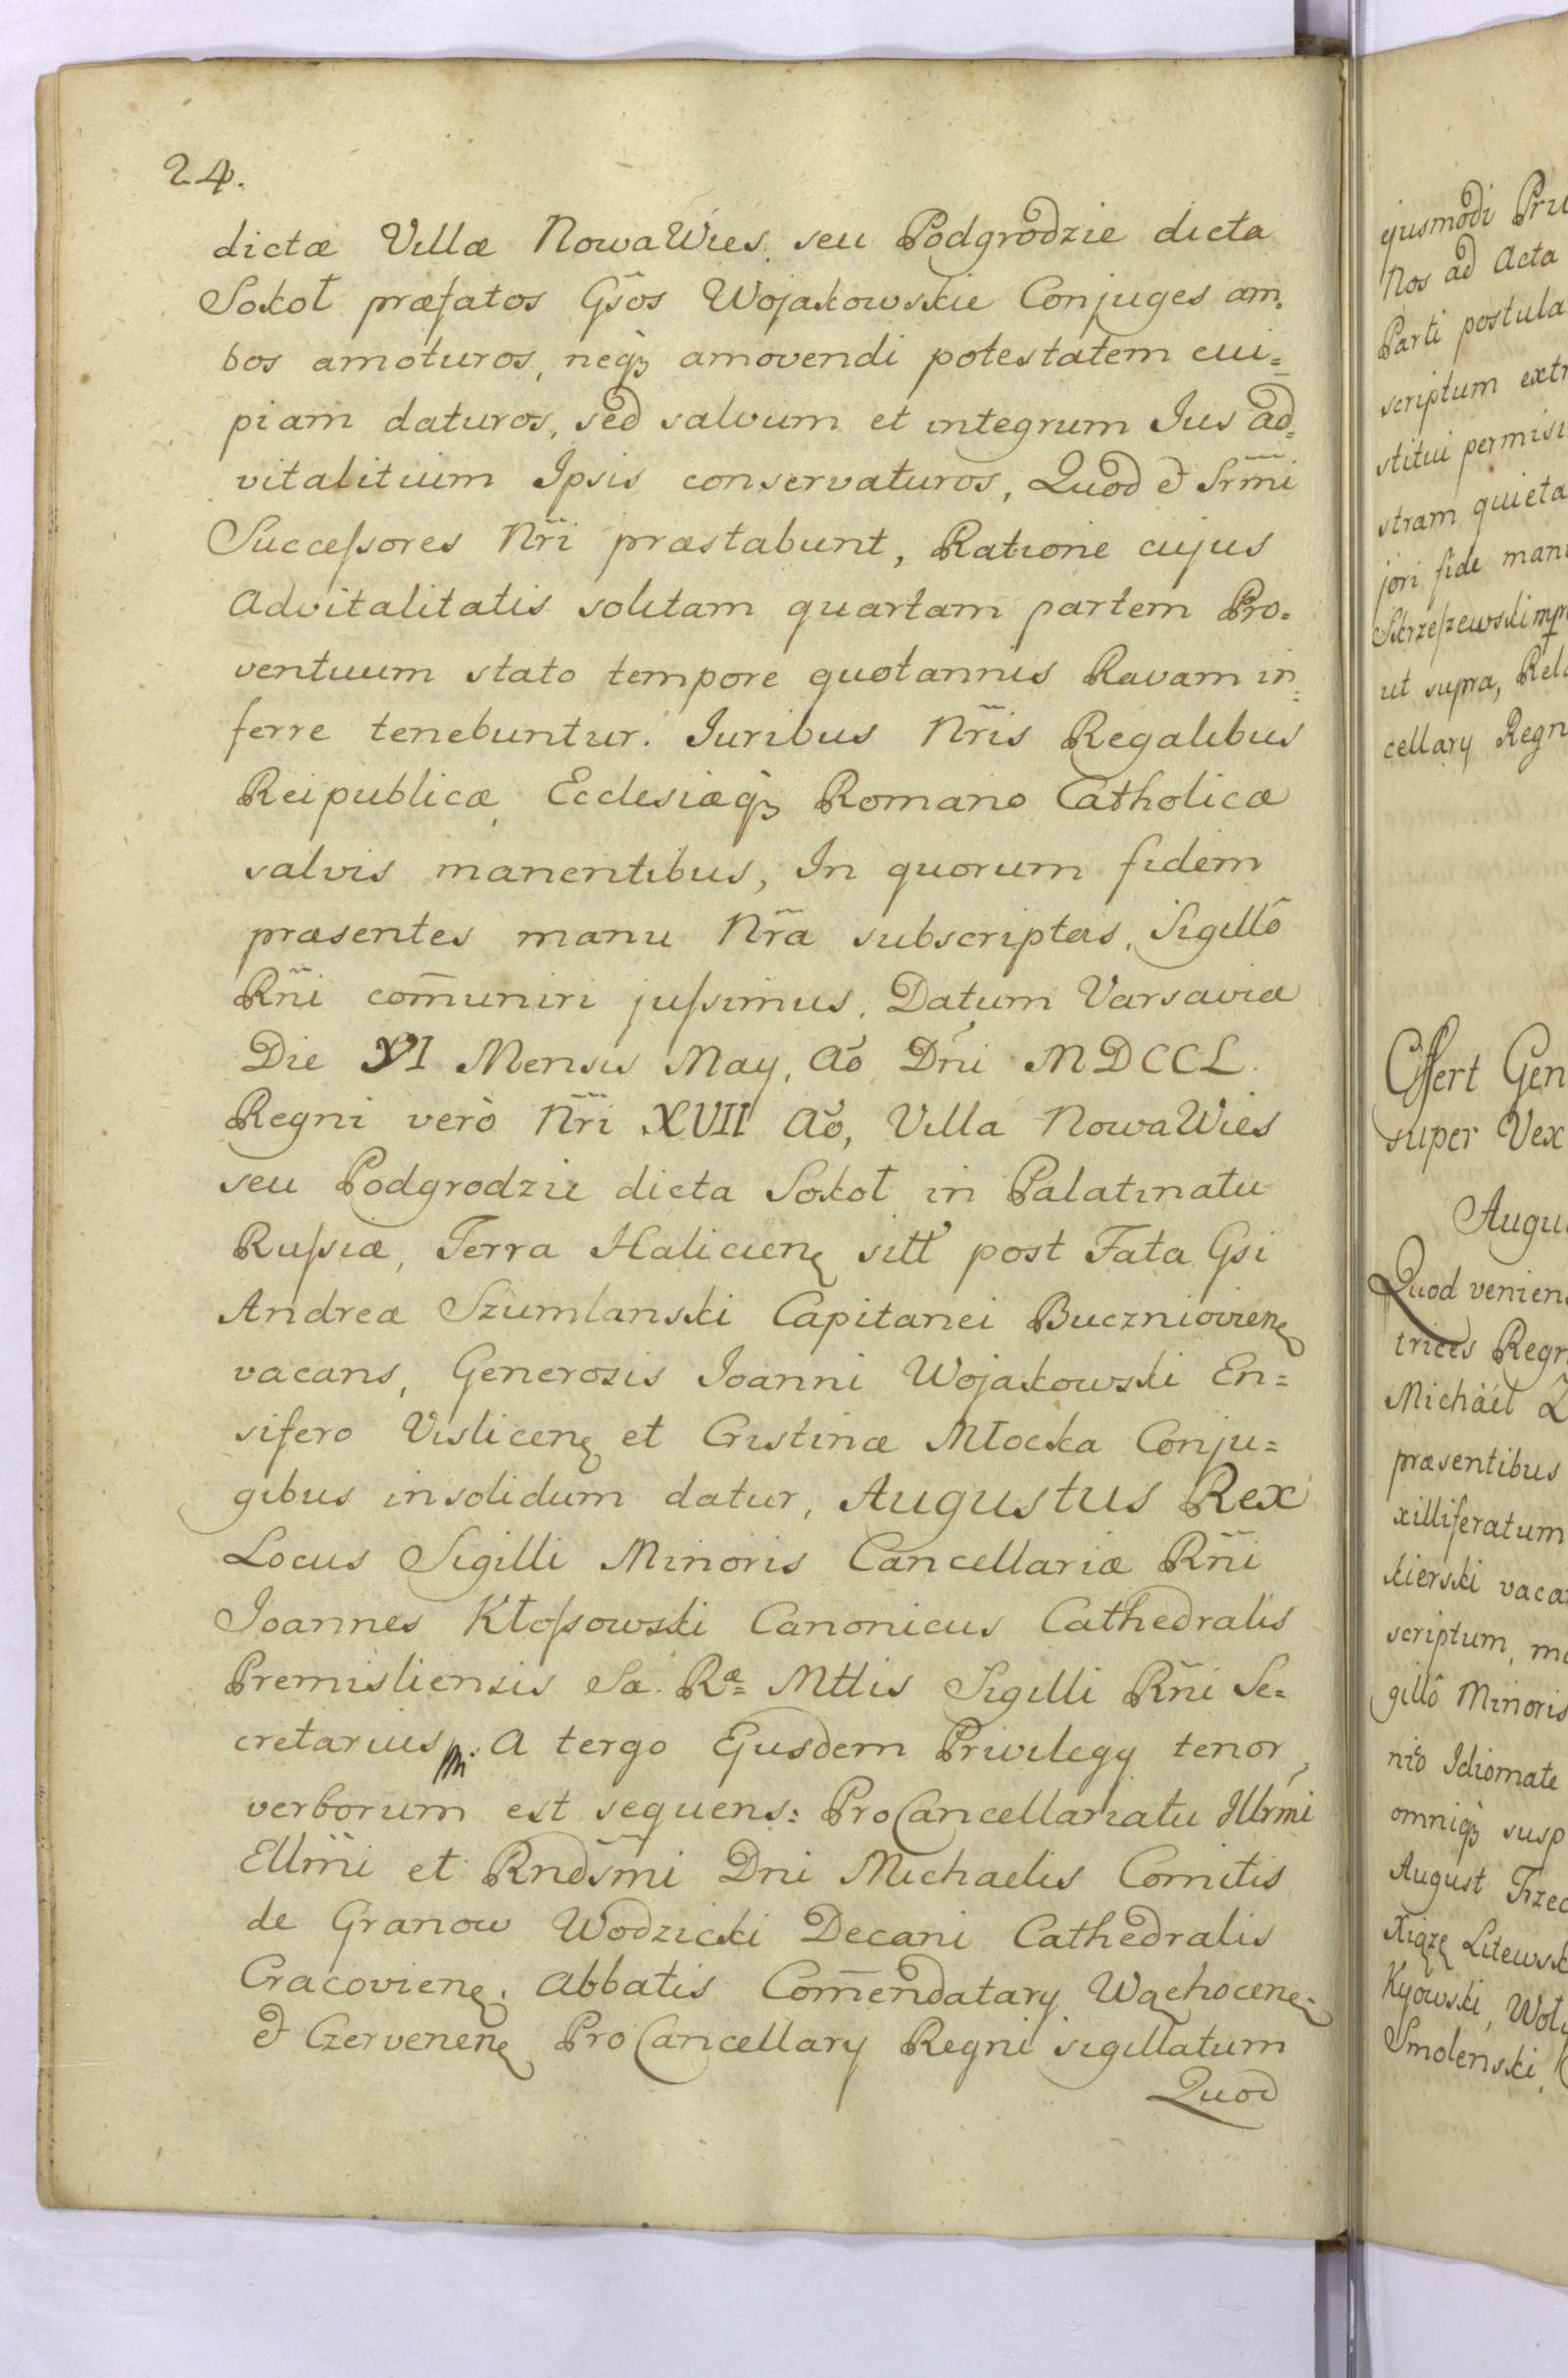 24.
dictæ Villæ Nowa Wies. seu Podgrodzie dicta
Sokoł præfatos Gsos Wojakowskie Conjuges am=
bos amoturos, neqȝ amovendi potestatem cui=
piam daturos, sed salvum et integrum Jus ad=
vitalitium Ipsis conservaturos, Quod & Srmi
Succeſsores Nri præstabunt, Ratione cujus
Advitalitatis solitam quartam partem Pro=
ventuum stato tempore quotannis Ravam in=
ferre tenebuntur. Juribus Nris Regalibus
Reipublicæ, Ecclesiæqȝ Romano Catholicæ
salvis manentibus, In quorum fidem
præsentes manu Nra subscriptas, Sigillô
Rni com̄uniri juſsimus. Datum Varsaviæ
Die VI Mensis May, Aõ Dni MDCCL.
Regni verò Nri XVII Aõ, Villa Nowa Wies
seu Podgrodzie dicta Sokoł in Palatinatu
Ruſsiæ, Terra Halicien. sitt post Fata Gsi
Andreæ Szumlanski Capitanei Buczniovien.
vacans, Generosis Joanni Wojakowski En=
sifero Vislicen. et Cristinæ Młocka Conju=
gibus insolidum datur, Augustus Rex
Locus Sigilli Minoris Cancellariæ Rni
Joannes Kłoſsowski Canonicus Cathedralis
Premisliensis Sa. Ræ= Mttis Sigilli Rni Se=
cretarius mp. A tergo Ejusdem Privilegy tenor
verborum est sequens: ProCancellariatu Illrmi
Ellmi et Rndsmi Dni Michaelis Comitis
de Granow Wodzicki Decani Cathedralis
Cracovien. Abbatis Com̄endatary Wąchocen.
& Czervenen. ProCancellary Regni sigillatum
Quod
ejusmodi Pri
Nos ad Acta
Parti postula
scriptum extr
stitui permisi
stram quieta
jori fide man
Skrzeſzewski mp
ut supra, Rel
cellary Regn
Offert Gen
super Vex
Augu
Quod venien
trices Regn
Micháil
præsentibus
xilliferatum
kierski vaca
scriptum, m
gillô Minoris
nio Idiomate
omniqȝ susp
August Trzec
Xiązę Litewsk
Kyowski, Woł
Smolenski,